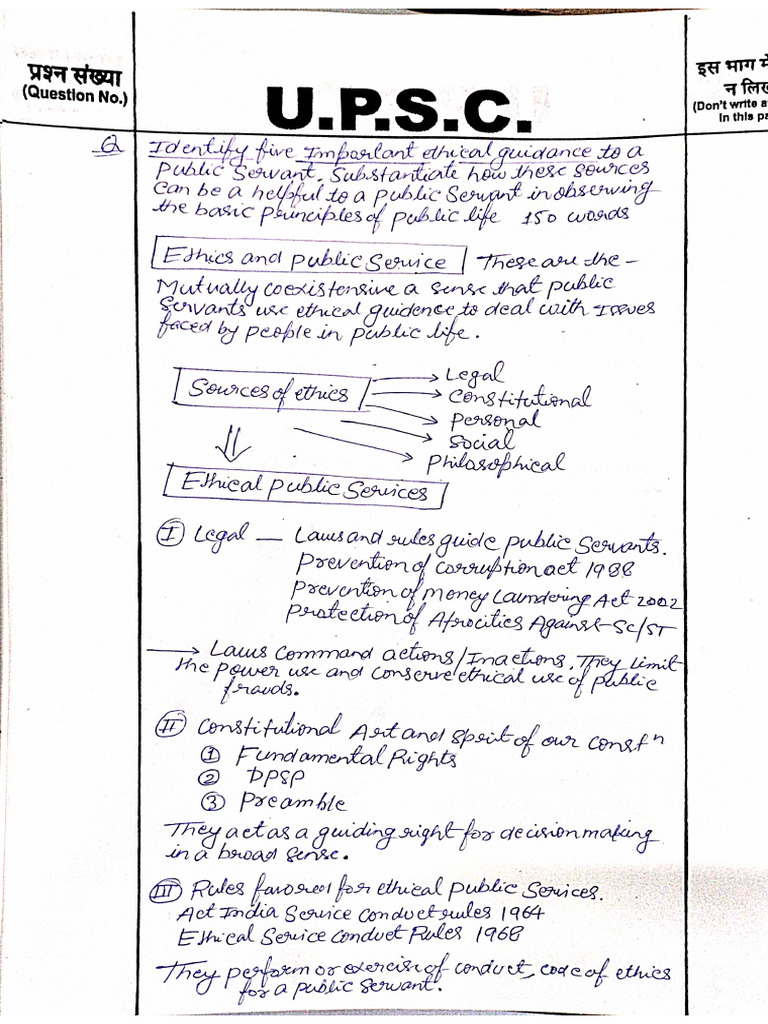 प्रश्न संख्या
(Question No.)
U.P.S.C.
इस भाग में
न लिख
(Don't write a
In this pa
Q Identify five Important ethical guidance to a
Public Servant. Substantiate how these sources
can be a helpful to a public Servant in observing
the basic principles of public life 150 words
Ethics and public Service These are the –
Mutually coexistensive a sense that public
Servants use ethical guidence to deal with Issues
faced by people in public life.
Sources of ethics
Legal
Constitutional
Personal
Social
Philosophical
Ethical public Services
I Legal — Laws and rules guide public Servants.
Prevention of corruption act 1988
Prevention of Money Laundering Act 2002
Protection of Atrocities Against SC/ST
Laws command actions/Inactions. They limit
the power use and conserve ethical use of public
frauds.
II Constitutional Art and Sprit of our constn
1 Fundamental Rights
2 DPSP
3 Preamble
They act as a guiding right for decision making
in a broad sense.
III Rules favored for ethical public Services.
Act India Service conduct rules 1964
Ethical Service conduct Rules 1968
They perform or exercise of conduct, code of ethics
for a public servant.